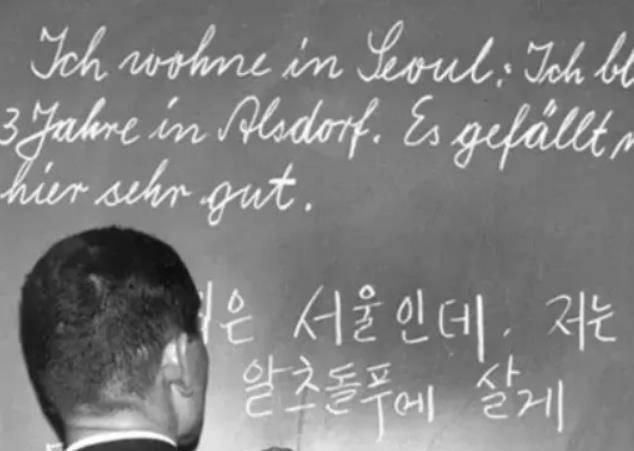 Ich wohne in Seoul; Ich bl
3 Jahre in Alsdorf. Es gefällt m
hier sehr gut.
은 서울인데, 저는
알츠돌푸에 살게